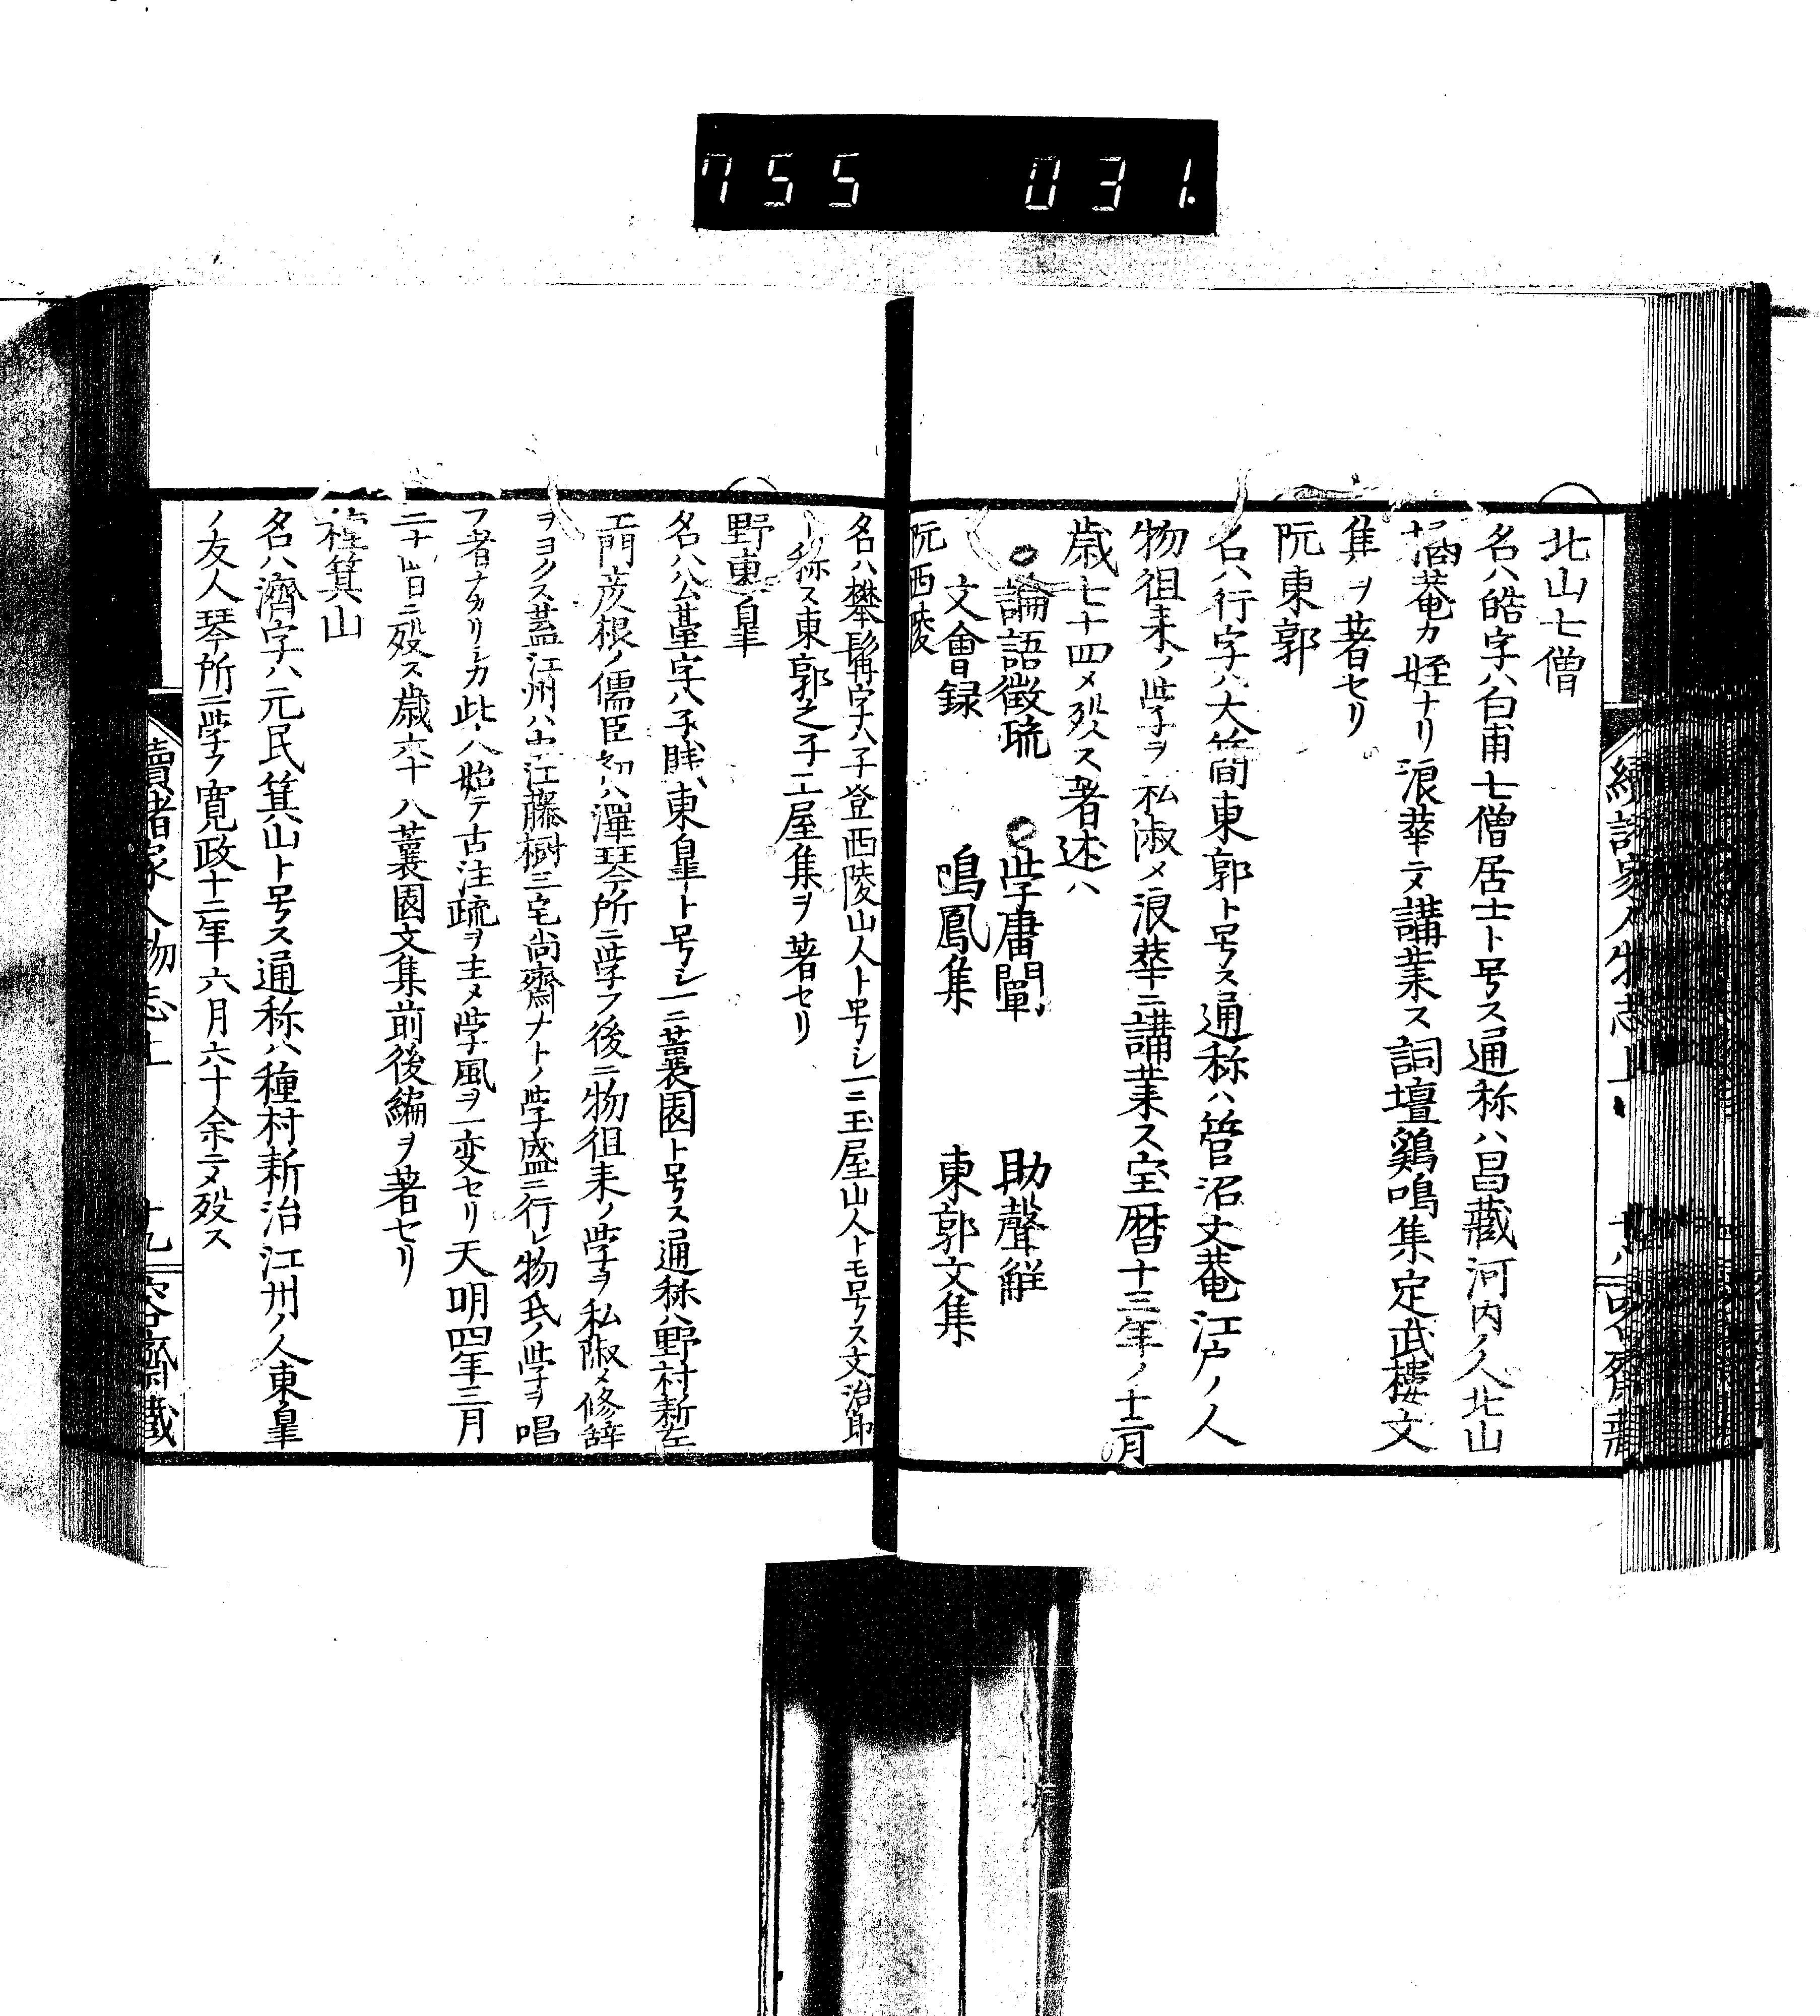 755 031.
北山七僧
名ハ皓字ハ白甫七僧居士ト号ス通称ハ昌藏河内ノ人北山
菴カ姪ナリ浪華ニテ講業ス詞壇鷄鳴集定武樓文
集ヲ著セリ
阮東郭
名ハ行字ハ大簡東郭ト号ス通称ハ管沼文菴江戸ノ人
物徂耒ノ学ヲ私淑メ浪華ニ講業ス宝暦十三年ノ十二月
歳七十四メ殁ス著述ハ
論語徴琉 学庸闡 助聲觧
文會録 鳴鳳集 東郭文集
阮西陵
名ハ攀髯字ハ子登西陵山人ト号シ一ニ玉屋山人トモ号ス文治郎
ト称ス東郭之子工屋集ヲ著セリ
野東皐
名ハ公臺字ハ子賎東皐ト号シ一ニ蘘園ト号ス通称ハ野村新左
エ門彦根ノ儒臣初ハ澤琴所ニ学フ後ニ物徂耒ノ学ヲ私淑メ修辞
ヲヨクス蓋江州ハ中江藤樹三宅尚齋ナトノ学盛ニ行レ物氏ノ学ヲ唱
フ者ナカリシカ此人始テ古注疏ヲ主メ学風ヲ一変セリ天明四年三月
二十四日ニ殁ス歳六十八蘘園文集前後編ヲ著セリ
種箕山
名ハ濟字ハ元民箕山ト号ス通称ハ種村新治江州ノ人東皐
ノ友人琴所ニ学フ寛政十二年六月六十余ニメ殁ス
續諸家人物志上 十九 容齋藏